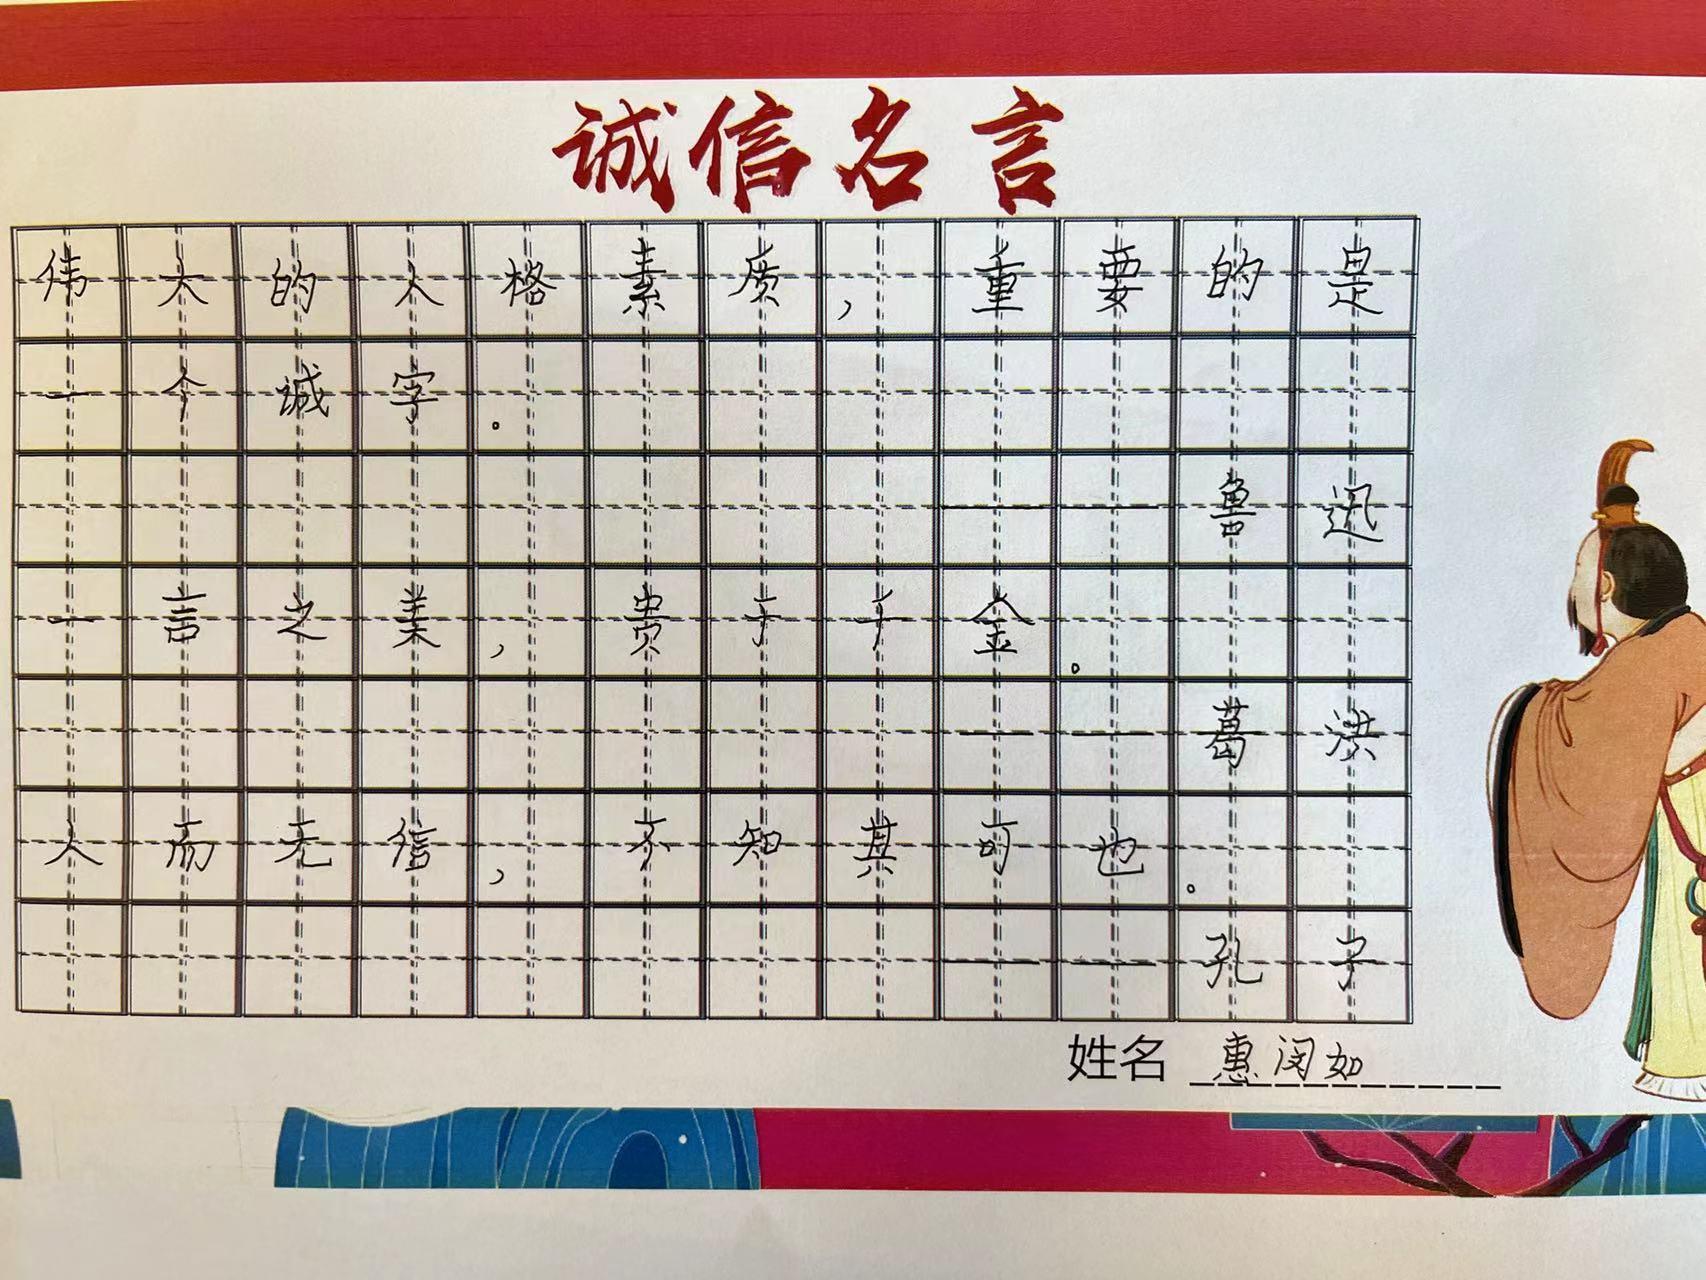 诚信名言
伟大的人格素质，重要的是
一个诚字。
——鲁迅
一言之美，贵于千金。
——葛洪
人而无信，不知其可也。
——孔子
姓名 惠闵如